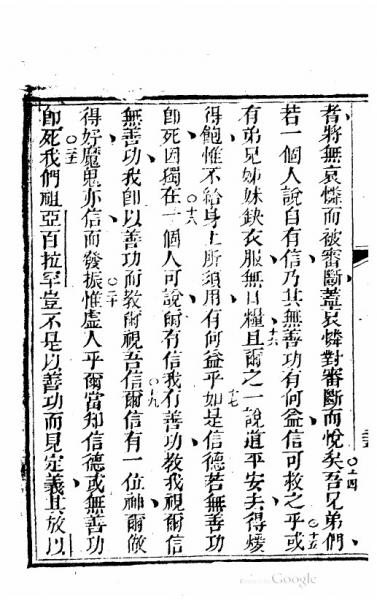 者將無哀憐而被審斷蓋哀憐對審斷而悅矣吾兄弟們○十四
若一個人說自有信乃其無善功有何益信可救之乎或○十五
有弟兄姊妹缺衣服無日糧且爾之一說道平安去得煖○十六
得飽惟不給身上所須用有何益乎如是信德若無善功○十七
卽死因獨在一個人可說爾有信我有善功教我視爾信○十八
無善功我卽以善功而教爾視吾信爾信有一位神爾做○十九
得好魔鬼亦信而發振惟虛人乎爾當知信德或無善功○二十
卽死我們祖亞百拉罕豈不是以善功而見定義其放以○二一
Google